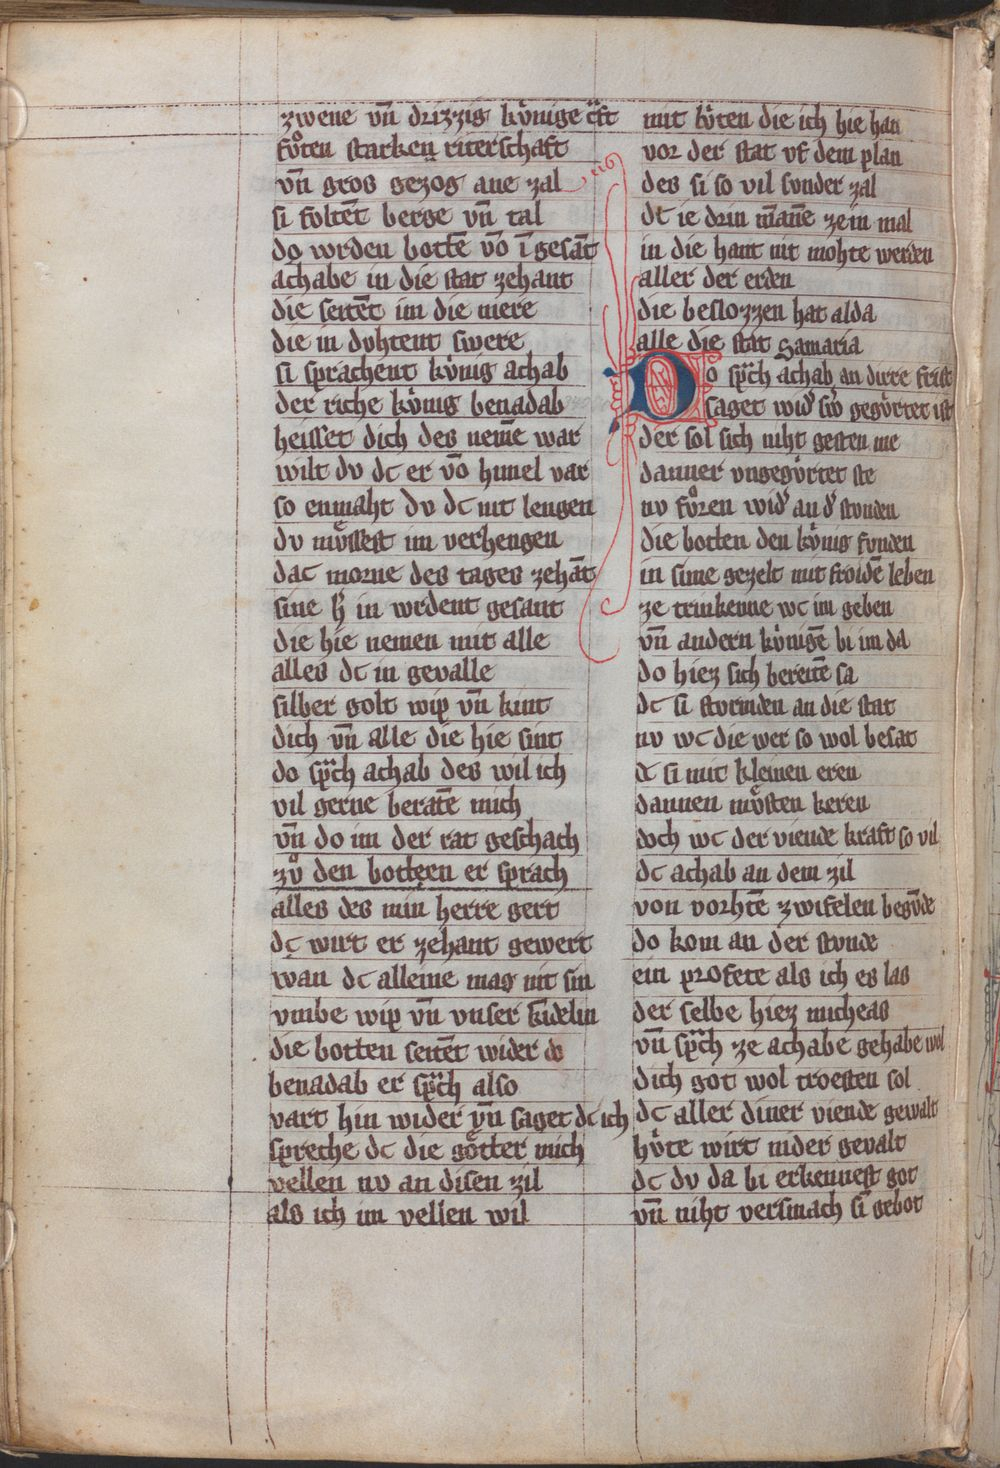 zwene vn̄ drizzig kv́nige
fv̊ten starken riterschaft
vn̄ gros gezog ane zal
si foltēt berge vn̄ tal
do wrden bottē vō ī gesāt
achabe in die stat zehant
die seitēt im die mere
die in dvhtent swere
si sprachent kv́nig achab
der riche kv́nig benadab
heisset dich des nemē war
wilt dv dc er vō himel var
so enmaht dv dc nit lengen
dv mv̊ssest im verhengen
dac morne des tages zehāt
sine in wrdent gesant
die hie nemen mit alle
alles dc in gevalle
silber golt wip vn̄ kint
dich vn̄ alle die hie sint
do spͣch achab des wil ich
vil gerne beratē mich
vn̄ do im der rat geschach
zv̊ den botten er sprach
alles des min herre gert
dc wirt er zehant gewert
wan dc alleine mag nit sin
vmbe wip vn̄ vnser kīdelin
die botten seitēt wider do
benadab er spͣch also
vart hin wider vn̄ saget dc ich
spreche dc die goͤtter mich
vellen nv an disen zil
als ich im vellen wil
mit lv́ten die ich hie han
vor der stat vf dem plan
des si so vil svnder zal
dc ie drin māne zein mal
in die hant nit mohte werden
aller der erden
die beslozzen hat alda
alle die stat Samaria
Do spͣch achab an dirre frist
saget wid̕ sw̕ gegv́rtet ist
der sol sich niht gesten me
danner vngegv́rtet ste
nv fv̊ren wid̕ an d̕ stvnden
die botten den kv́nig fvnden
in sime gezelt mit froidē leben
ze trinkenne wc im geben
vn̄ andern kv́nigē bi im da
do hiez sich bereitē sa
dc si stvrmden an die stat
nv wc die wer so wol besat
dc si mit kleinen eren
dannen mv̊sten keren
doch wc der viende kraft so vil
dc achab an dem zil
von vorhtē zwifelen begv̄de
do kom an der stvnde
ein profete als ich es las
der selbe hiez micheas
vn̄ spͣch ze achabe gehabe wol
dich got wol troesten sol
dc aller diner viende gewalt
hv́te wirt nider gevalt
dc dv da bi erkennest got
vn̄ niht versmach sī gebot